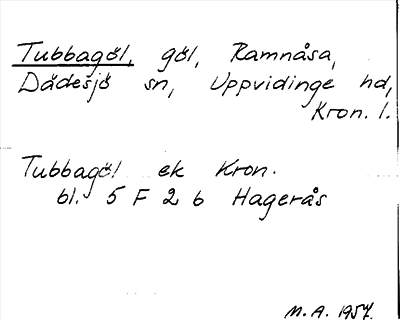 Tubbagöl, göl, Ramnåsa,
Dädesjö sn, Uppvidinge hd,
Kron. l.
Tubbagöl ek Kron.
bl. 5 F 2 b Hagerås
M.A. 1957.